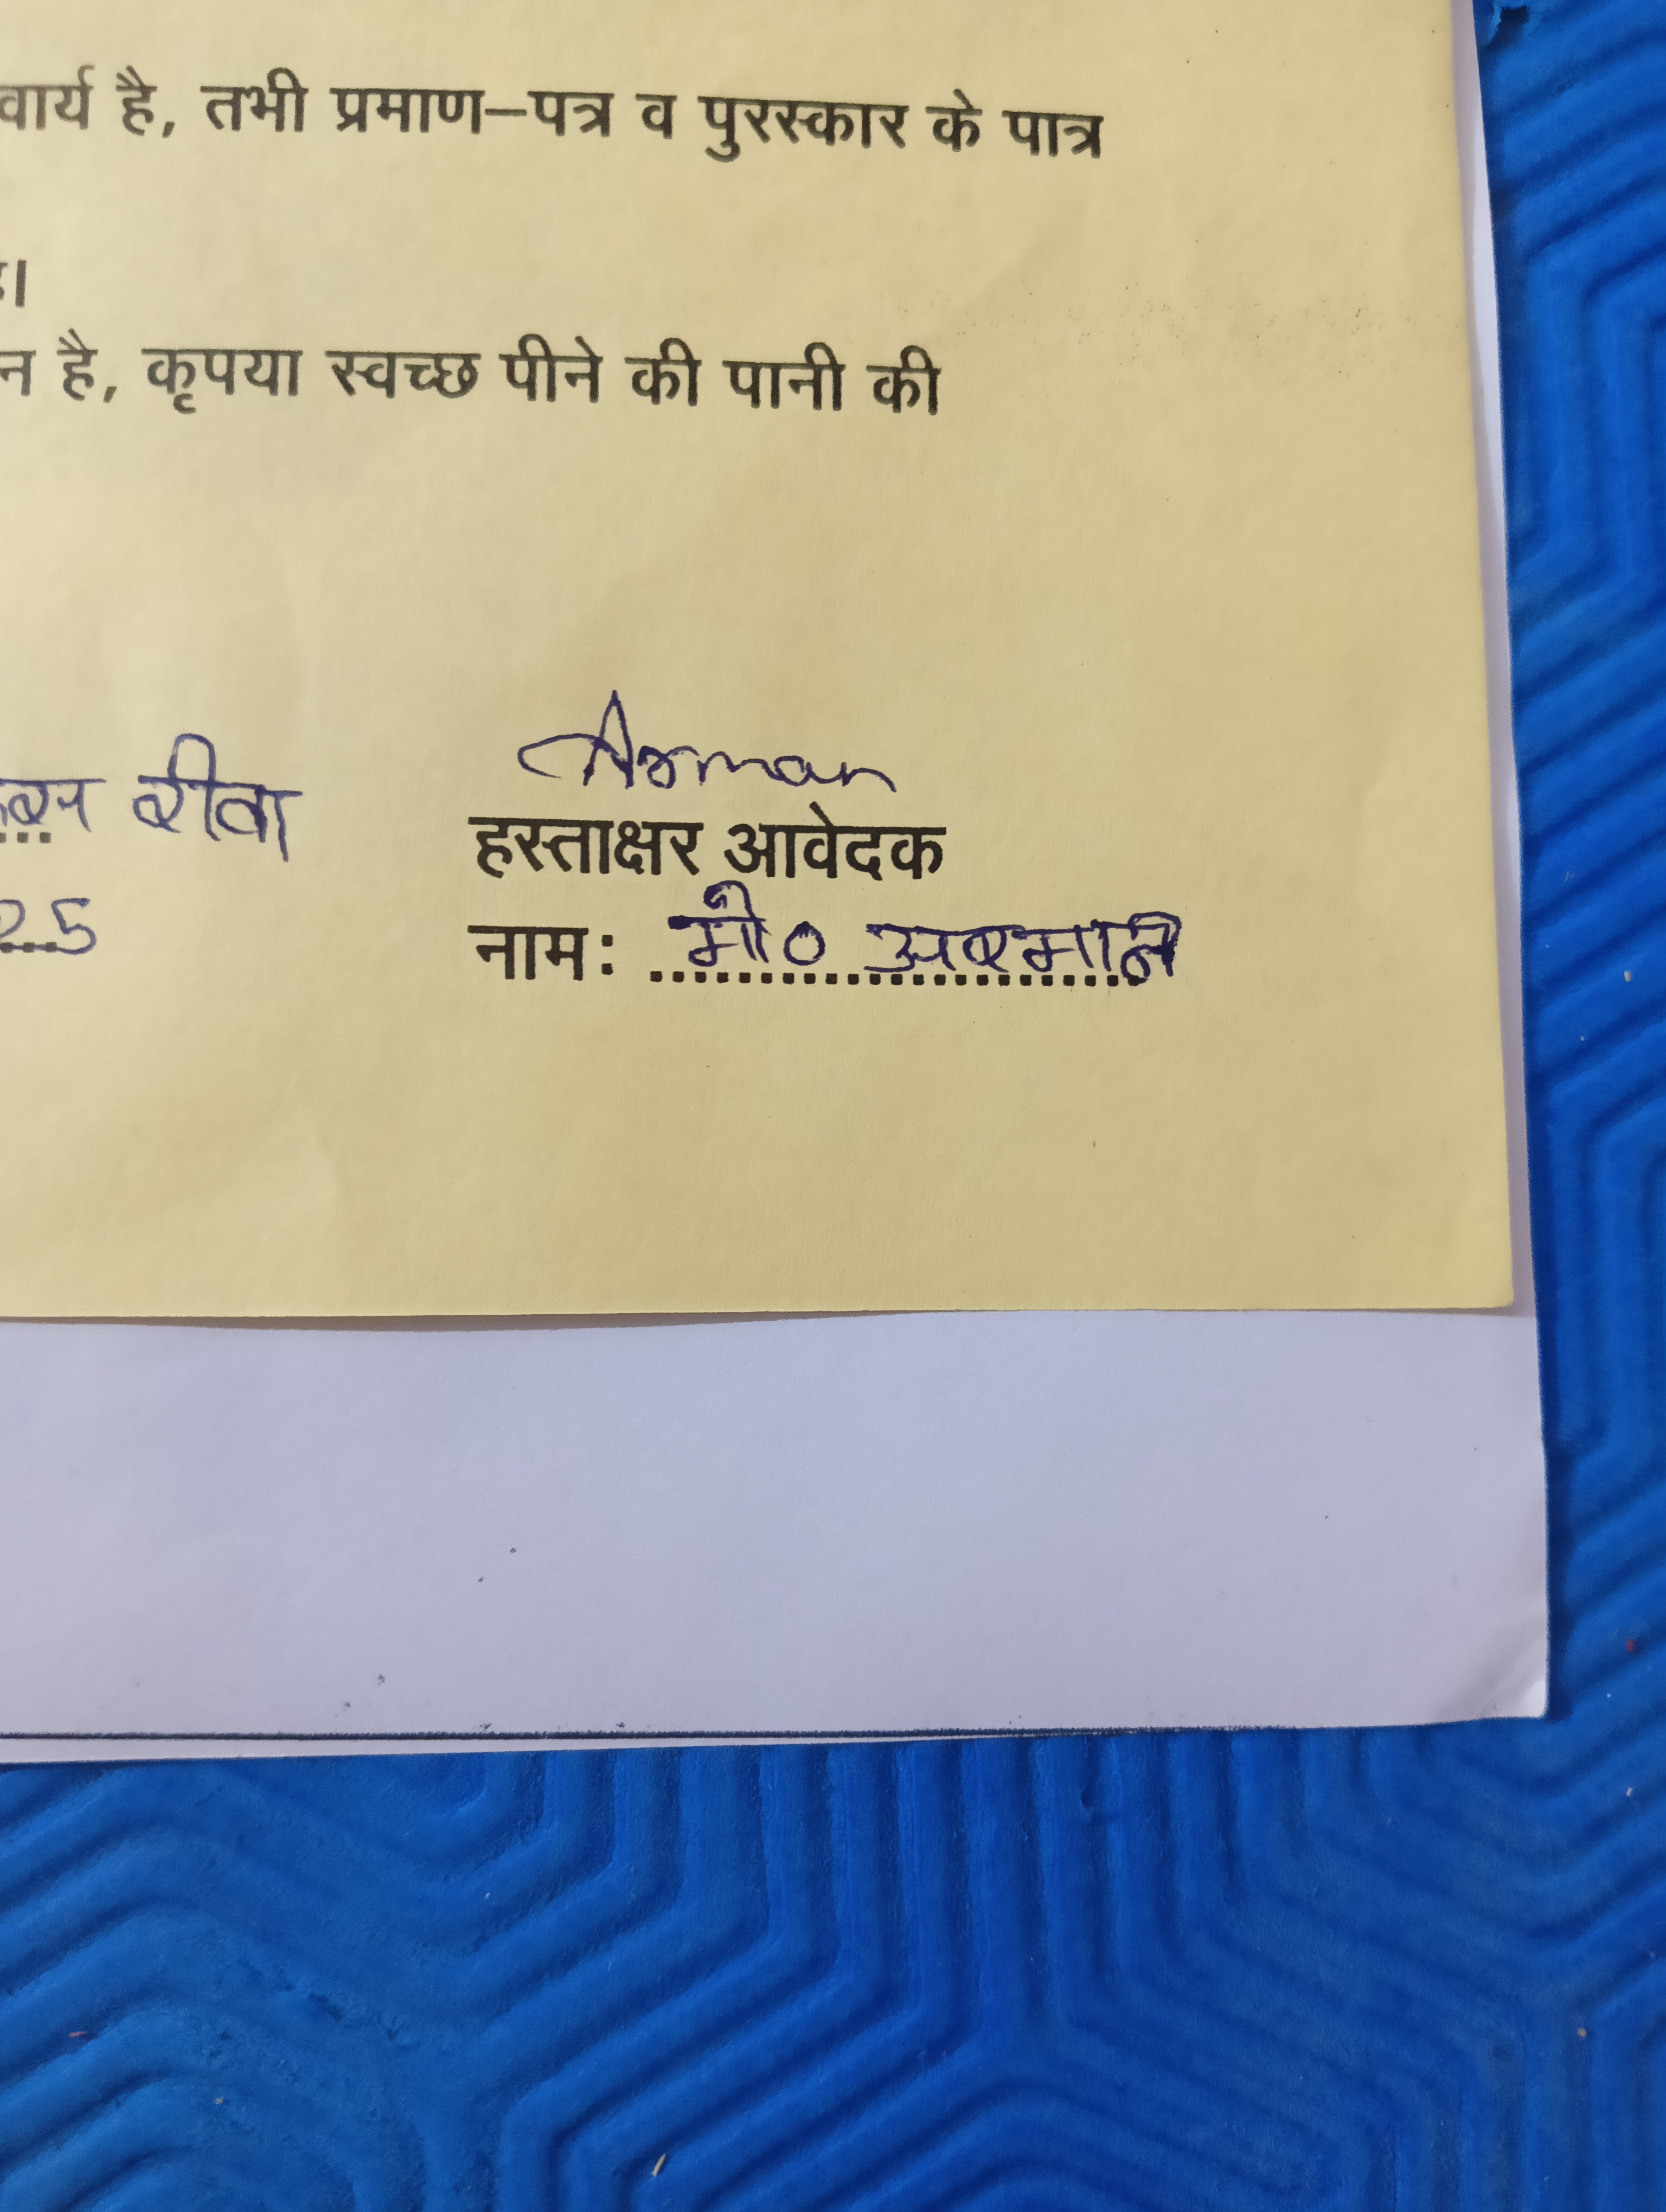 वार्य है, तभी प्रमाण–पत्र व पुरस्कार के पात्र
है।
न है, कृपया स्वच्छ पीने की पानी की
Arman
रीवा हस्ताक्षर आवेदक
25 नामः मो० अरमान